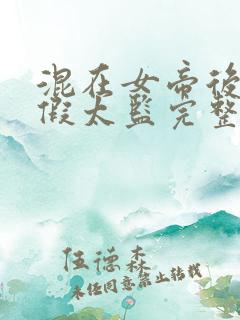 混在女帝後
假太監完整
伍德森
未经同意禁止转载